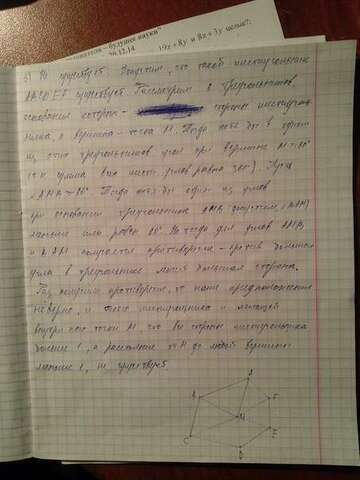 будущее науки"
20.12.14
19x+8y и 8x+3y целые?
Не существует. Допустим, что такой шестиугольник
ABCDEF существует. Рассмотрим 6 треугольников,
основания которых - стороны шестиугольника
ника, а вершина - точка M. Тогда хотя бы в одном
из этих треугольников угол при вершине M ≥ 60°
(т.к. сумма всех шести углов равна 360°). Пусть
∠AMB ≥ 60°. Тогда хотя бы один из углов
при основании треугольника AMB (допустим, ∠BAM)
меньше или равен 60°. Но тогда для углов AMB
и BAM получается противоречие - против большего
угла в треугольнике лежит большая сторона.
Так получили противоречие, то наше предположение
неверно, и такие шестиугольника и лежащей
внутри него точки M, что все стороны шестиугольника
больше 1, а расстояние от M до любой вершины
меньше 1, не существует.
A
B
F
M
C
D
E